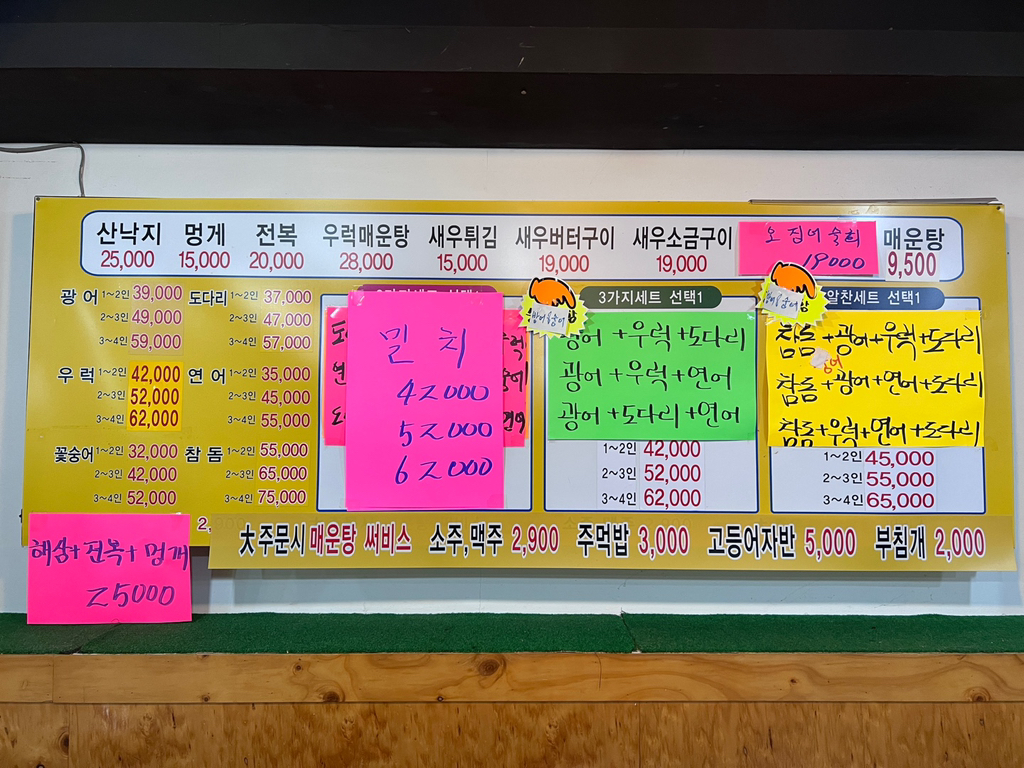 산낙지 멍게 전복 우럭매운탕 새우튀김 새우버터구이 새우소금구이 매운탕
25,000 15,000 20,000 28,000 15,000 19,000 19,000 9,500
오징어숙회
19000
광어 1~2인 39,000 도다리 1~2인 37,000
2~3인 49,000 2~3인 47,000
3~4인 59,000 3~4인 57,000
우럭 1~2인 42,000 연어 1~2인 35,000
2~3인 52,000 2~3인 45,000
3~4인 62,000 3~4인 55,000
꽃숭어 1~2인 32,000 참돔 1~2인 55,000
2~3인 42,000 2~3인 65,000
3~4인 52,000 3~4인 75,000
밀치
42000
52000
62000
3가지세트 선택1
광어+우럭+도다리
광어+우럭+연어
광어+도다리+연어
1~2인 42,000
2~3인 52,000
3~4인 62,000
알찬세트 선택1
참돔+광어+우럭+도다리
참돔+광어+연어+도다리
참돔+우럭+연어+도다리
1~2인 45,000
2~3인 55,000
3~4인 65,000
해삼+전복+멍개
25000
大주문시 매운탕 써비스 소주,맥주 2,900 주먹밥 3,000 고등어자반 5,000 부침개 2,000